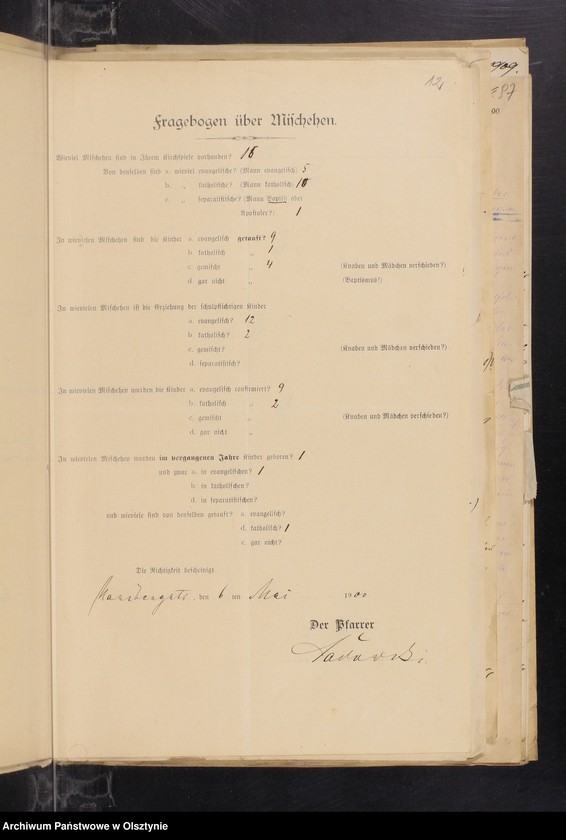 12,
Fragebogen über Mischehen.
Wieviel Mischehen sind in Ihrem Kirchspiele vorhanden? 16
Von denselben sind a. wieviel evangelische? (Mann evangelisch) 5
b. „ katholische? (Mann katholisch) 10
c. „ separatistische? (Mann Baptist oder
Apostoler?) 1
In wievielen Mischehen sind die Kinder a. evangelisch getauft? 9
b. katholisch „ 1
c. gemischt „ 4 (Knaben und Mädchen verschieden?)
d. gar nicht „ (Baptismus!)
In wievielen Mischehen ist die Erziehung der schulpflichtigen Kinder
a. evangelisch? 12
b. katholisch? 2
c. gemischt? (Knaben und Mädchen verschieden?)
d. separatistisch?
In wievielen Mischehen wurden die Kinder a. evangelisch confirmiert? 9
b. katholisch „ 2
c. gemischt „ (Knaben und Mädchen verschieden?)
d. gar nicht „
In wievielen Mischehen wurden im vergangenen Jahre Kinder geboren? 1
und zwar a. in evangelischen? 1
b. in katholischen?
d. in separatistischen?
und wieviele sind von denselben getauft? a. evangelisch?
d. katholisch? 1
c. gar nicht?
Die Richtigkeit bescheinigt
den 6 ten Mai 1900
Der Pfarrer
1909.
97
00
Archiwum Państwowe w Olsztynie